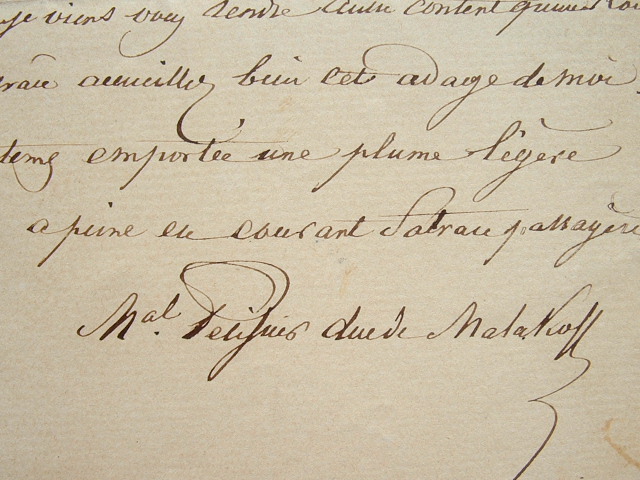 je viens vous rendre aussi content qu'un Roi
accueillez bien cet adage de moi
emportée une plume légère
a peine en courant sa trace passagère
Mal. Pelissier duc de Malakoff